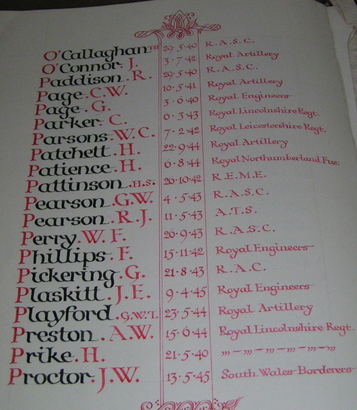 O'Callaghan 29·5·40 R.A.S.C.
O'Connor. J. 3·7·42 Royal Artillery
Paddison. R. 29·5·40 R.A.S.C.
Page. C.W. 10·5·41 Royal Artillery
Page. G. 3·6·40 Royal Engineers
Parker. C. 6·3·43 Royal Lincolnshire Regt.
Parsons. W.C. 7·2·42 Royal Leicestershire Regt.
Patchett. H. 22·9·44 Royal Artillery
Patience. H. 6·8·44 Royal Northumberland Fus:
Pattinson. H.S. 20·10·42 R.E.M.E.
Pearson. G.W. 4·5·43 R.A.S.C.
Pearson. R.J. 11·5·43 A.T.S.
Perry. W.F. 20·9·43 R.A.S.C.
Phillips. F. 15·11·42 Royal Engineers
Pickering. G. 21·8·43 R.A.C.
Plaskitt. J.E. 9·4·45 Royal Engineers
Playford. G.W.T. 23·5·44 Royal Artillery
Preston. A.W. 15·6·44 Royal Lincolnshire Regt.
Prike. H. 21·5·40 "—"—"—"—"—"
Proctor. J.W. 13·5·45 South Wales Borderers